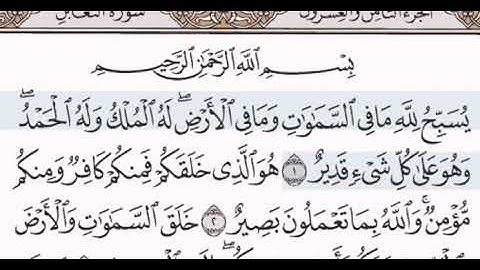 الجزء الثامن والعشرون سورة التغابن
بِسْمِ اللَّهِ الرَّحْمَٰنِ الرَّحِيمِ
يُسَبِّحُ لِلَّهِ مَا فِي السَّمَاوَاتِ وَمَا فِي الْأَرْضِ ۖ لَهُ الْمُلْكُ وَلَهُ الْحَمْدُ ۖ
وَهُوَ عَلَىٰ كُلِّ شَيْءٍ قَدِيرٌ ١ هُوَ الَّذِي خَلَقَكُمْ فَمِنكُمْ كَافِرٌ وَمِنكُم
مُّؤْمِنٌ ۚ وَاللَّهُ بِمَا تَعْمَلُونَ بَصِيرٌ ٢ خَلَقَ السَّمَاوَاتِ وَالْأَرْضَ